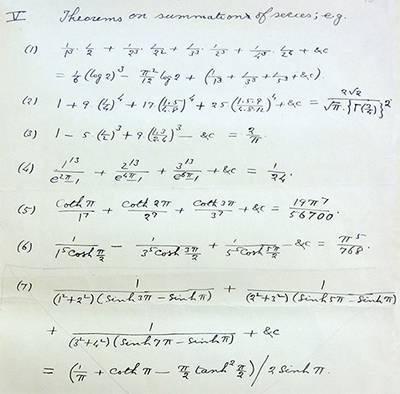 V Theorems on summation of series; e.g.
(1) 1/1³ · 1/2 + 1/2³ · 1/2² + 1/3³ · 1/2³ + 1/4³ · 1/2⁴ + &c
= 1/6 (log 2)³ − π²/12 log 2 + (1/1³ + 1/3³ + 1/5³ + &c).
(2) 1 + 9 (1/4)⁴ + 17 (1·5/4·8)⁴ + 25 (1·5·9/4·8·12)⁴ + &c = 2√2 / √π · {Γ(3/4)}²
(3) 1 − 5 (1/2)³ + 9 (1·3/2·4)³ − &c = 2/π
(4) 1¹³/e^2π−1 + 2¹³/e^4π−1 + 3¹³/e^6π−1 + &c = 1/24.
(5) coth π/1⁷ + coth 2π/2⁷ + coth 3π/3⁷ + &c = 19π⁷/56700.
(6) 1/1⁵ cosh π/2 − 1/3⁵ cosh 3π/2 + 1/5⁵ cosh 5π/2 − &c = π⁵/768.
(7) 1/(1²+2²)(sinh 3π − sinh π) + 1/(2²+3²)(sinh 5π − sinh π)
+ 1/(3²+4²)(sinh 7π − sinh π) + &c
= (1/π + coth π − π/2 tanh² π/2) / 2 sinh π.